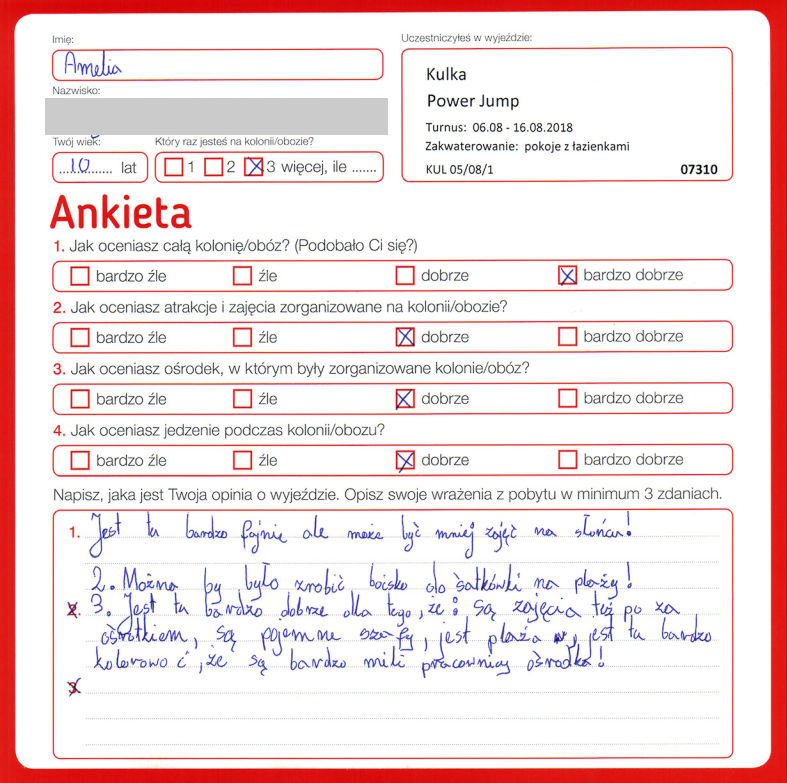 Imię:
Amelia
Nazwisko:
Twój wiek:
Który raz jesteś na kolonii/obozie?
10 lat
1 2 3 więcej, ile .......
Uczestniczyłeś w wyjeździe:
Kulka
Power Jump
Turnus: 06.08 - 16.08.2018
Zakwaterowanie: pokoje z łazienkami
KUL 05/08/1 07310
Ankieta
1. Jak oceniasz całą kolonię/obóz? (Podobało Ci się?)
bardzo źle źle dobrze bardzo dobrze
2. Jak oceniasz atrakcje i zajęcia zorganizowane na kolonii/obozie?
bardzo źle źle dobrze bardzo dobrze
3. Jak oceniasz ośrodek, w którym były zorganizowane kolonie/obóz?
bardzo źle źle dobrze bardzo dobrze
4. Jak oceniasz jedzenie podczas kolonii/obozu?
bardzo źle źle dobrze bardzo dobrze
Napisz, jaka jest Twoja opinia o wyjeździe. Opisz swoje wrażenia z pobytu w minimum 3 zdaniach.
1. Jest tu bardzo fajnie ale może być mniej zajęć na słońcu!
2. Można by było zrobić boisko do śatkówki na plaży!
2. 3. Jest tu bardzo dobrze dla tego, że: są zajęcia też po za
ośrotkiem, są pojemne szafy, jest plaża, jest tu bardzo
kolorowo i, że są bardzo mili pracownicy ośrodka!
3.